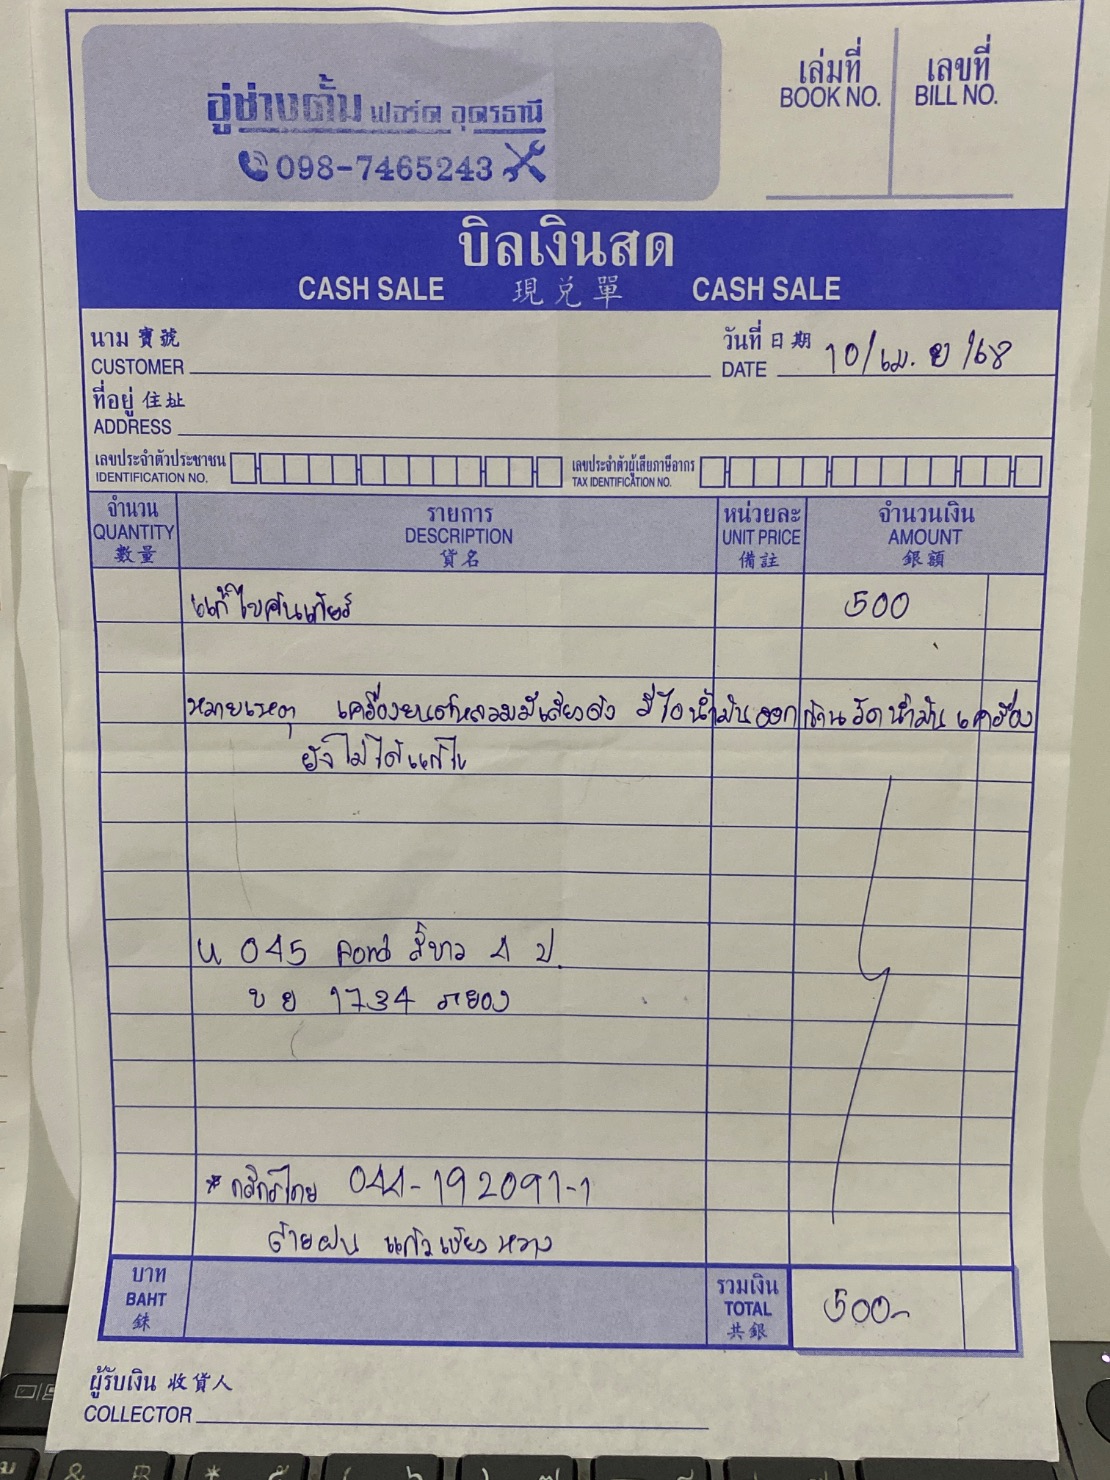 อู่ช่างตั้ม ฟอร์ด อุดรธานี
098-7465243
เล่มที่ เลขที่
BOOK NO. BILL NO.
บิลเงินสด
CASH SALE 現兑單 CASH SALE
นาม 寶號
CUSTOMER
วันที่ 日期 10/เม.ย/68
DATE
ที่อยู่ 住址
ADDRESS
เลขประจำตัวประชาชน เลขประจำตัวผู้เสียภาษีอากร
IDENTIFICATION NO. TAX IDENTIFICATION NO.
จำนวน รายการ หน่วยละ จำนวนเงิน
QUANTITY DESCRIPTION UNIT PRICE AMOUNT
數量 貨名 備註 銀額
แก้ไขคันเกียร์ 500
หมายเหตุ เครื่องยนต์หลวมมีเสียงดัง มีไอน้ำมันออกก้านวัดน้ำมันเครื่อง
ยังไม่ได้แก้ไข
น 045 Ford สีขาว 4 ป.
ขย 1734 ระยอง
*กสิกรไทย 044-192091-1
สายฝน แก้วเขียวหวาง
บาท รวมเงิน
BAHT TOTAL 500-
銖 共銀
ผู้รับเงิน 收貨人
COLLECTOR